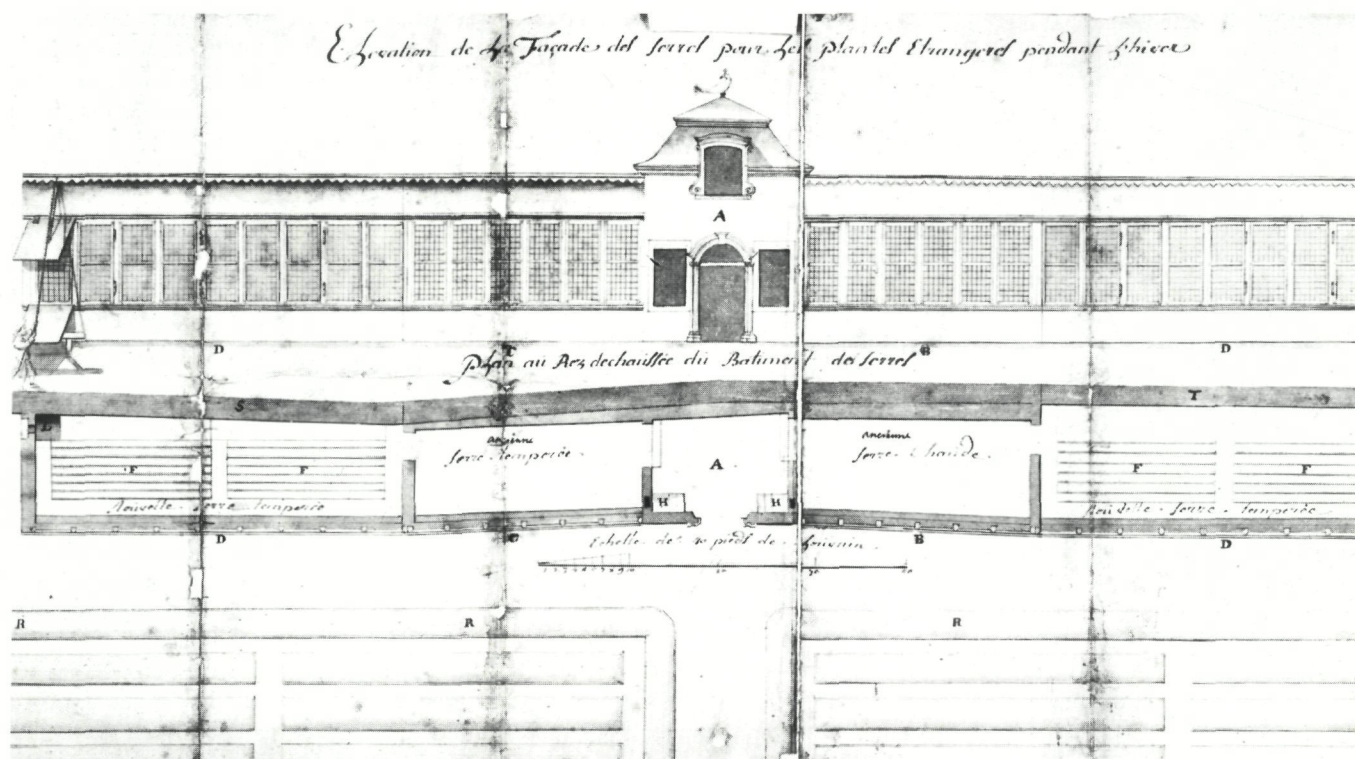 Elevation de La Façade des serres pour Les plantes Etrangeres pendant L'hiver
A
D T B D
plan au Rez dechaussée du Batiment des serres
S T
E
F F
ancienne
serre temperée
A
ancienne
serre chaude
F F
H H
Nouvelle serre temperée
Nouvelle serre temperée
D C B D
Echelle de pieds de Louvain
R R R